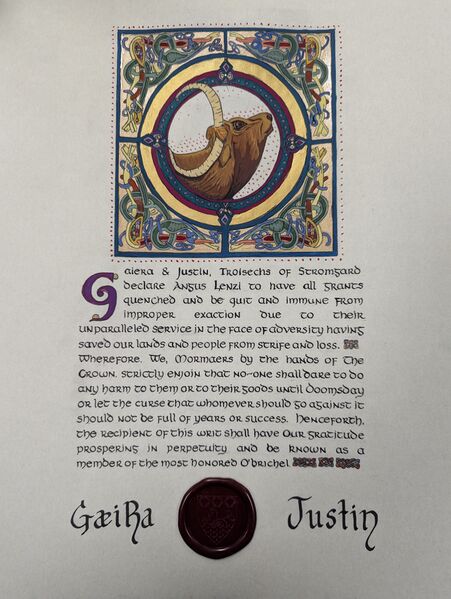 Gaiera & Justin, Troisechs of Stromgard
declare Angus Lenzi to have all grants
quenched and be quit and immune from
improper exaction due to their
unparalleled service in the face of adversity having
saved our lands and people from strife and loss.
Wherefore, We, Mormaers by the hands of The
Crown, strictly enjoin that no-one shall dare to do
any harm to them or to their goods until Doomsday
or let the curse that whomever should go against it
should not be full of years or success. Henceforth,
the recipient of this writ shall have Our gratitude
prospering in perpetuity and be known as a
member of the most honored O'brichel
GæiRa Justin